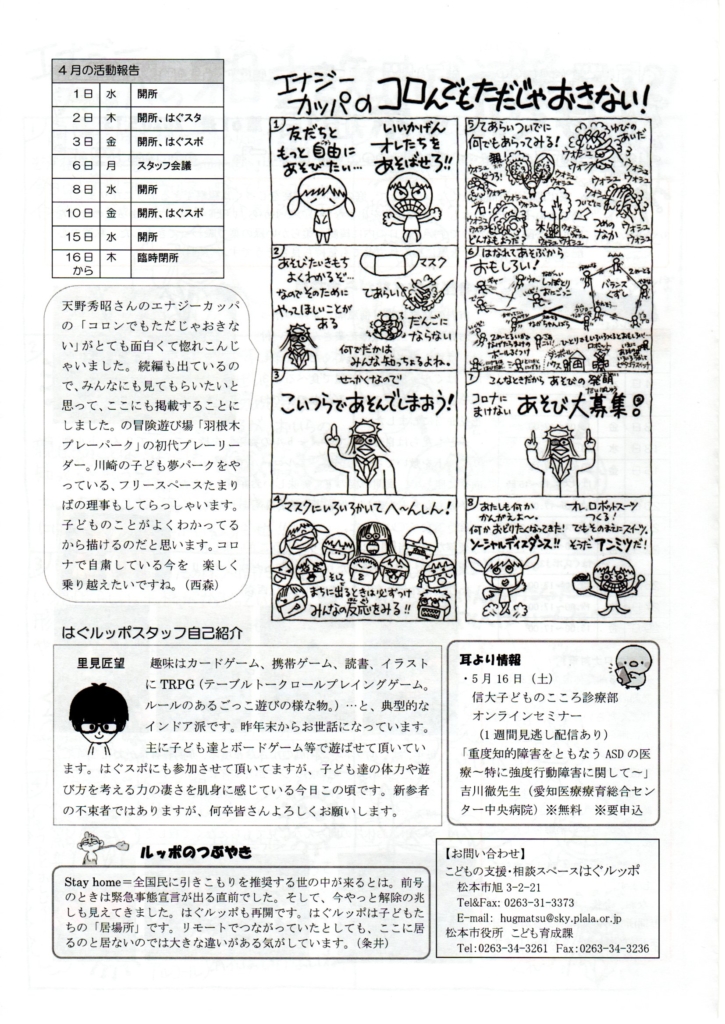 4月の活動報告
1日 水 開所
2日 木 開所、はぐスタ
3日 金 開所、はぐスポ
6日 月 スタッフ会議
8日 水 開所
10日 金 開所、はぐスポ
15日 水 開所
16日から 木 臨時閉所
天野秀昭さんのエナジーカッパ
の「コロンでもただじゃおきな
い」がとても面白くて惚れこんじ
ゃいました。続編も出ているの
で、みんなにも見てもらいたいと
思って、ここにも掲載することに
しました。の冒険遊び場「羽根木
プレーパーク」の初代プレーリー
ダー。川崎の子ども夢パークをや
っている、フリースペースたまり
ばの理事もしてらっしゃいます。
子どものことがよくわかってる
から描けるのだと思います。コロ
ナで自粛している今を 楽しく
乗り越えたいですね。（西森）
エナジー
カッパの コロんでもただじゃおきない！
1
友だちと
もっと自由に
あそびたい…
いいかげん
オレたちを
あそばせろ!!
2
あそびたいきもち
よくわかるぞ…
なのでそのために
やってほしいことが
ある
マスク
てあらい
だんごに
ならない
何でだかは
みんな知っちょるよね。
3
せっかくなので
こいつらであそんでしまおう！
4
マスクにいろいろかいてへ〜んしん！
そして
まちに出るときは必ずつけ
みんなの反応をみる!!
5
てあらいついでに
何でもあらってみる！
ゆびの
あいだ
ウォシュ
ウォシュ
石！
木！
ついでに
つめの
なか
ウォシュ
どんなもようだ？
6
はなれてあそぶから
おもしろい！
バランス
くずし
7
こんなときだから あそびの発明
コロナに
まけない
あそび大募集！
8
あたしも何か
かんがえよ〜。
何かおどりたくなってきた！
ソーシャルディスダンス!!
オレ、ロボットスーツ
つくる！
でもそのまえにスイーツ。
そうだアンミツだ！
はぐルッポスタッフ自己紹介
里見匠望
趣味はカードゲーム、携帯ゲーム、読書、イラスト
に TRPG（テーブルトークロールプレイングゲーム。
ルールのあるごっこ遊びの様な物。）…と、典型的な
インドア派です。昨年末からお世話になっています。
主に子ども達とボードゲーム等で遊ばせて頂いてい
ます。はぐスポにも参加させて頂いてますが、子ども達の体力や遊
び方を考える力の凄さを肌身に感じている今日この頃です。新参者
の不束者ではありますが、何卒皆さんよろしくお願いします。
耳より情報
・5月16日（土）
信大子どものこころ診療部
オンラインセミナー
（1週間見逃し配信あり）
「重度知的障害をともなうASDの医
療～特に強度行動障害に関して～」
吉川徹先生（愛知医療療育総合セン
ター中央病院）※無料 ※要申込
ルッポのつぶやき
Stay home＝全国民に引きこもりを推奨する世の中が来るとは。前号
のときは緊急事態宣言が出る直前でした。そして、今やっと解除の兆
しも見えてきました。はぐルッポも再開です。はぐルッポは子どもた
ちの「居場所」です。リモートでつながっていたとしても、ここに居
るのと居ないのでは大きな違いがある気がしています。（条井）
【お問い合わせ】
こどもの支援・相談スペースはぐルッポ
松本市旭 3-2-21
Tel&Fax: 0263-31-3373
E-mail: hugmatsu@sky.plala.or.jp
松本市役所 こども育成課
Tel:0263-34-3261 Fax:0263-34-3236